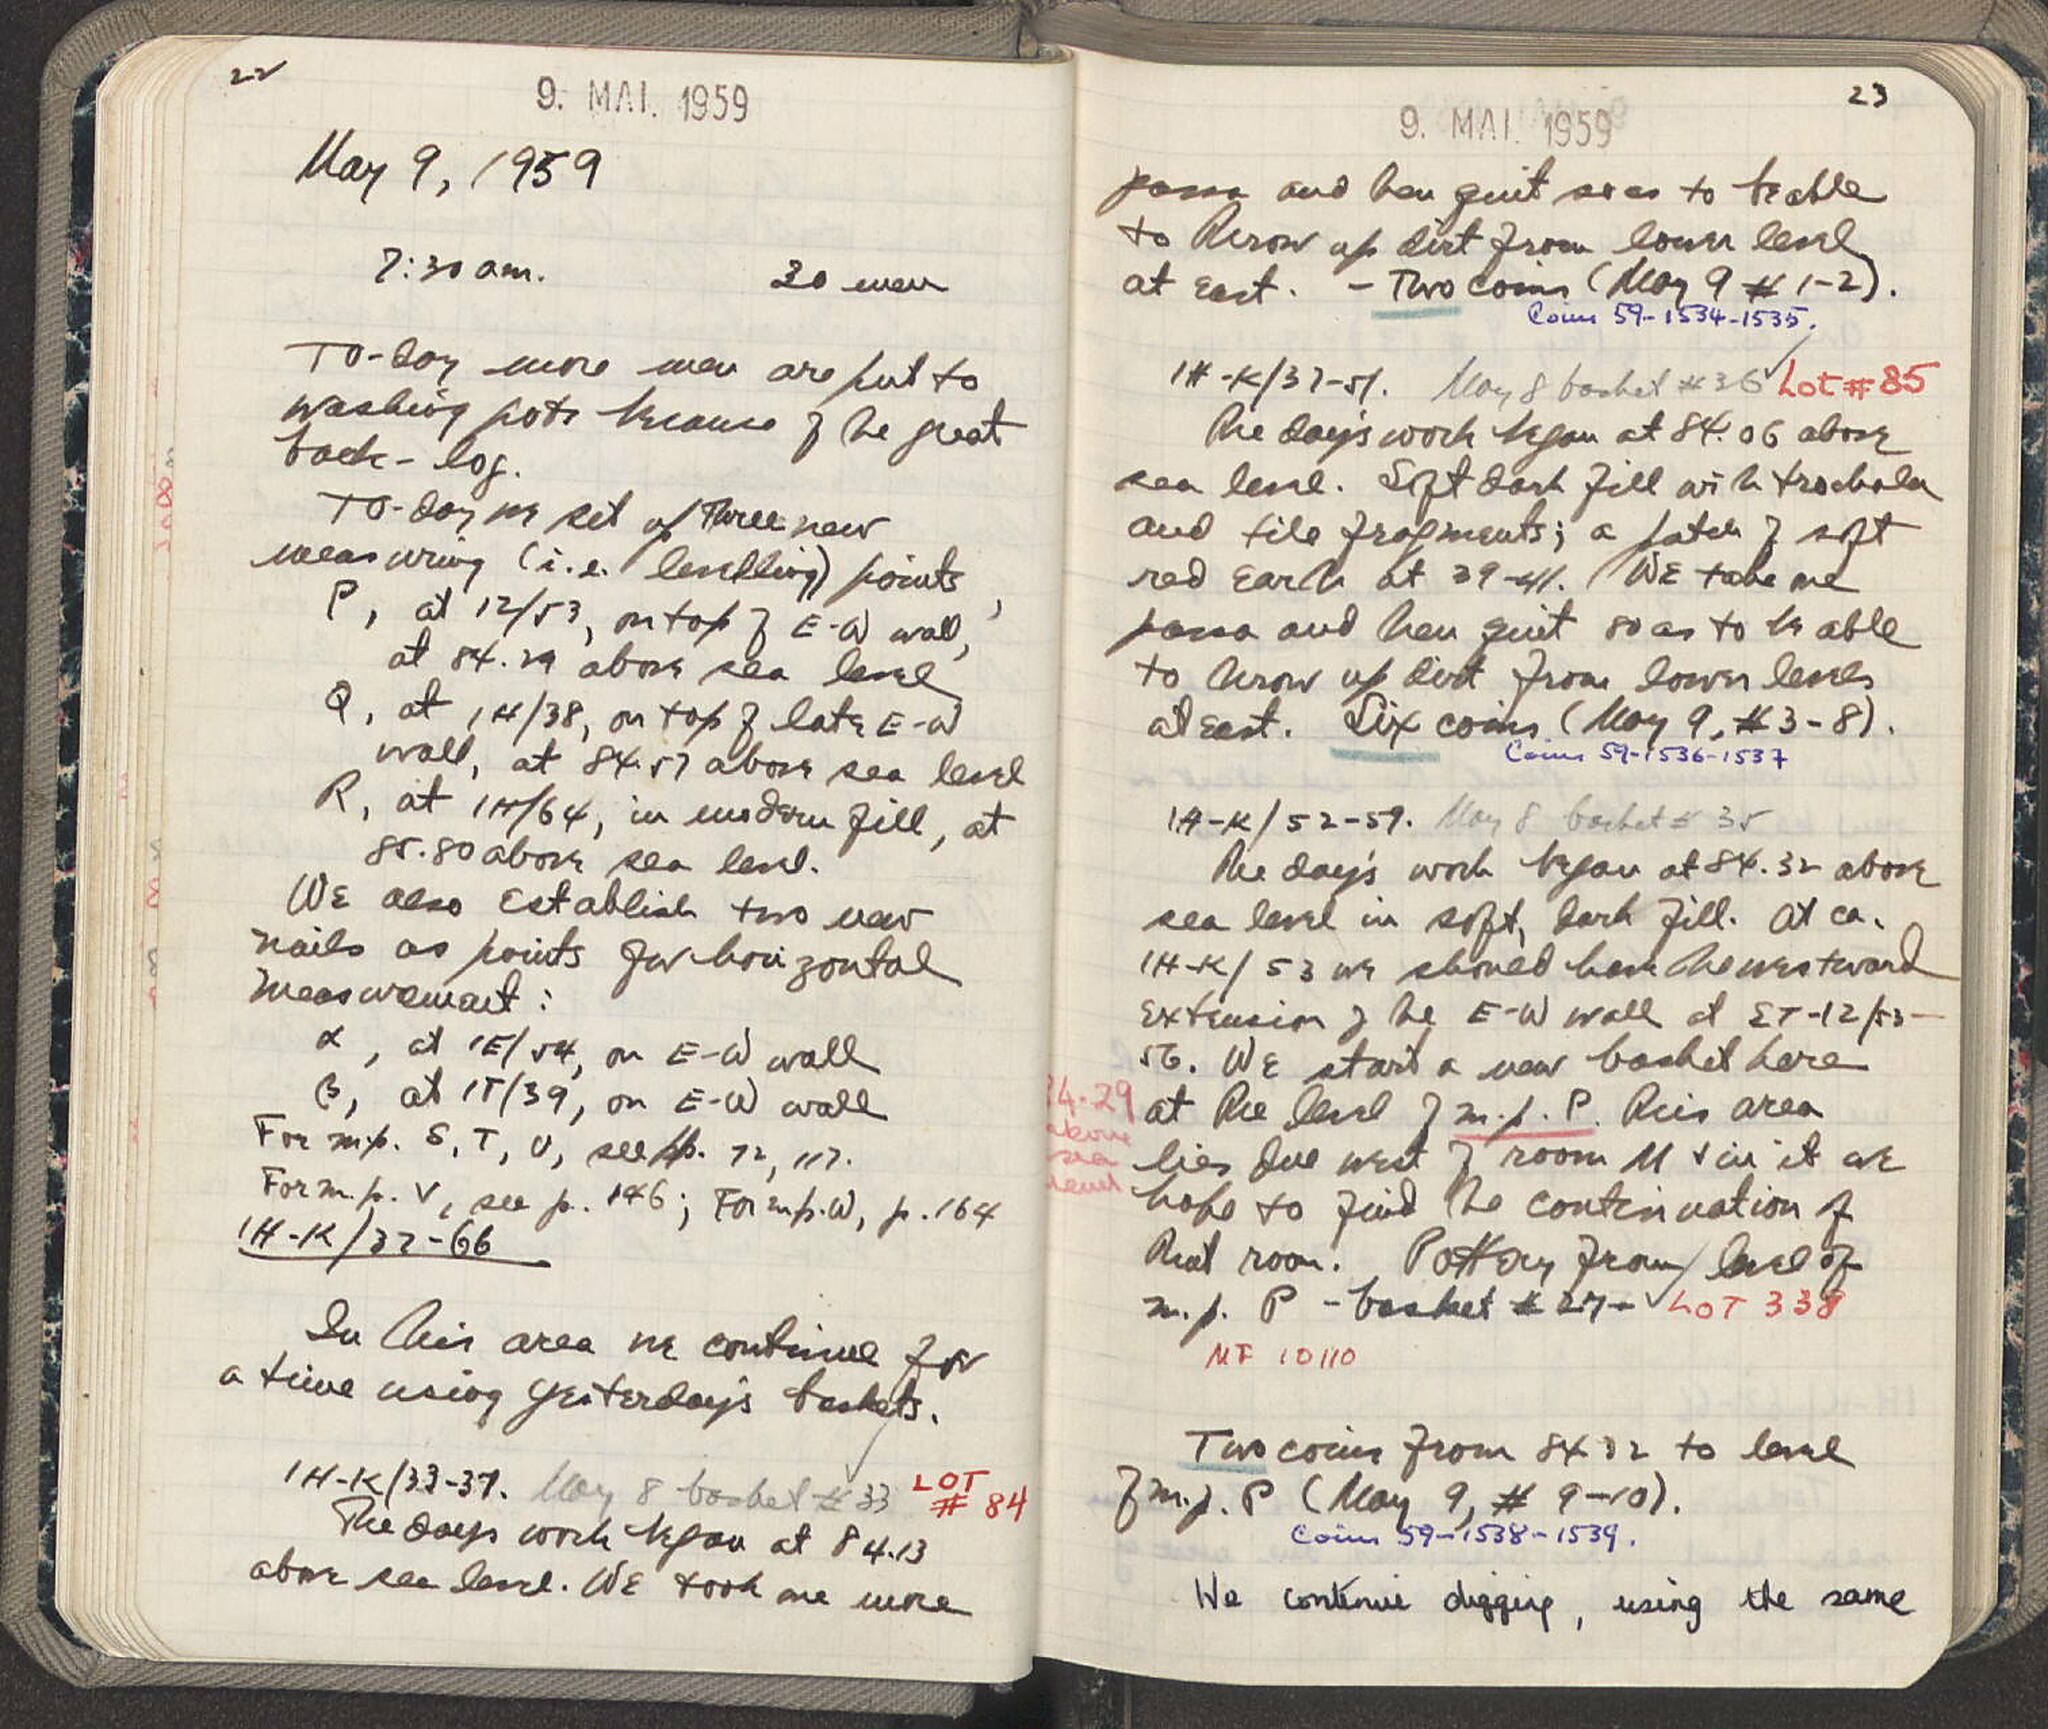 22
9. MAI. 1959
May 9, 1959
7:30 am. 30 men
To-day more men are put to
washing pots because of the great
back-log.
To-day we set up three new
measuring (i.e. levelling) points,
P, at 12/53, on top of E-W wall,
at 84.29 above sea level
Q, at 1H/38, on top of late E-W
wall, at 84.57 above sea level
R, at 1H/64, in modern fill, at
85.80 above sea level.
We also establish two new
nails as points for horizontal
measurement:
α, at 1E/54, on E-W wall
β, at 1T/39, on E-W wall
For m.p. S, T, U, see pp. 72, 117.
For m.p. V, see p. 146; For m.p. W, p. 164
1H-K/37-66
In this area we continue for
a time using yesterday's baskets.
1H-K/33-37. May 8 basket #33 LOT
# 84
The day's work began at 84.13
above sea level. We took one more
23
9. MAI. 1959
passa and then quit so as to be able
to throw up dirt from lower level
at east. - Two coins (May 9 # 1-2).
Coins 59-1534-1535.
1H-K/37-51. May 8 basket #36 Lot #85
The day's work began at 84.06 above
sea level. Soft dark fill with trochala
and tile fragments; a patch of soft
red earth at 39-41. We take one
passa and then quit so as to be able
to throw up dirt from lower levels
at east. Six coins (May 9, #3-8).
Coins 59-1536-1537
1H-K/52-59. May 8 basket # 35
The day's work began at 84.32 above
sea level in soft, dark fill. At ca.
1H-K/53 we should have the westward
extension of the E-W wall at ET-12/53-
56. We start a new basket here
at the level of m.p. P. This area
84.29
above
sea
level
lies due west of room M & in it we
hope to find the continuation of
that room. Pottery from level of
m.p. P - basket # 27- LOT 338
MF 10110
Two coins from 84.32 to level
of m.p. P (May 9, # 9-10).
Coins 59-1538-1539.
We continue digging, using the same